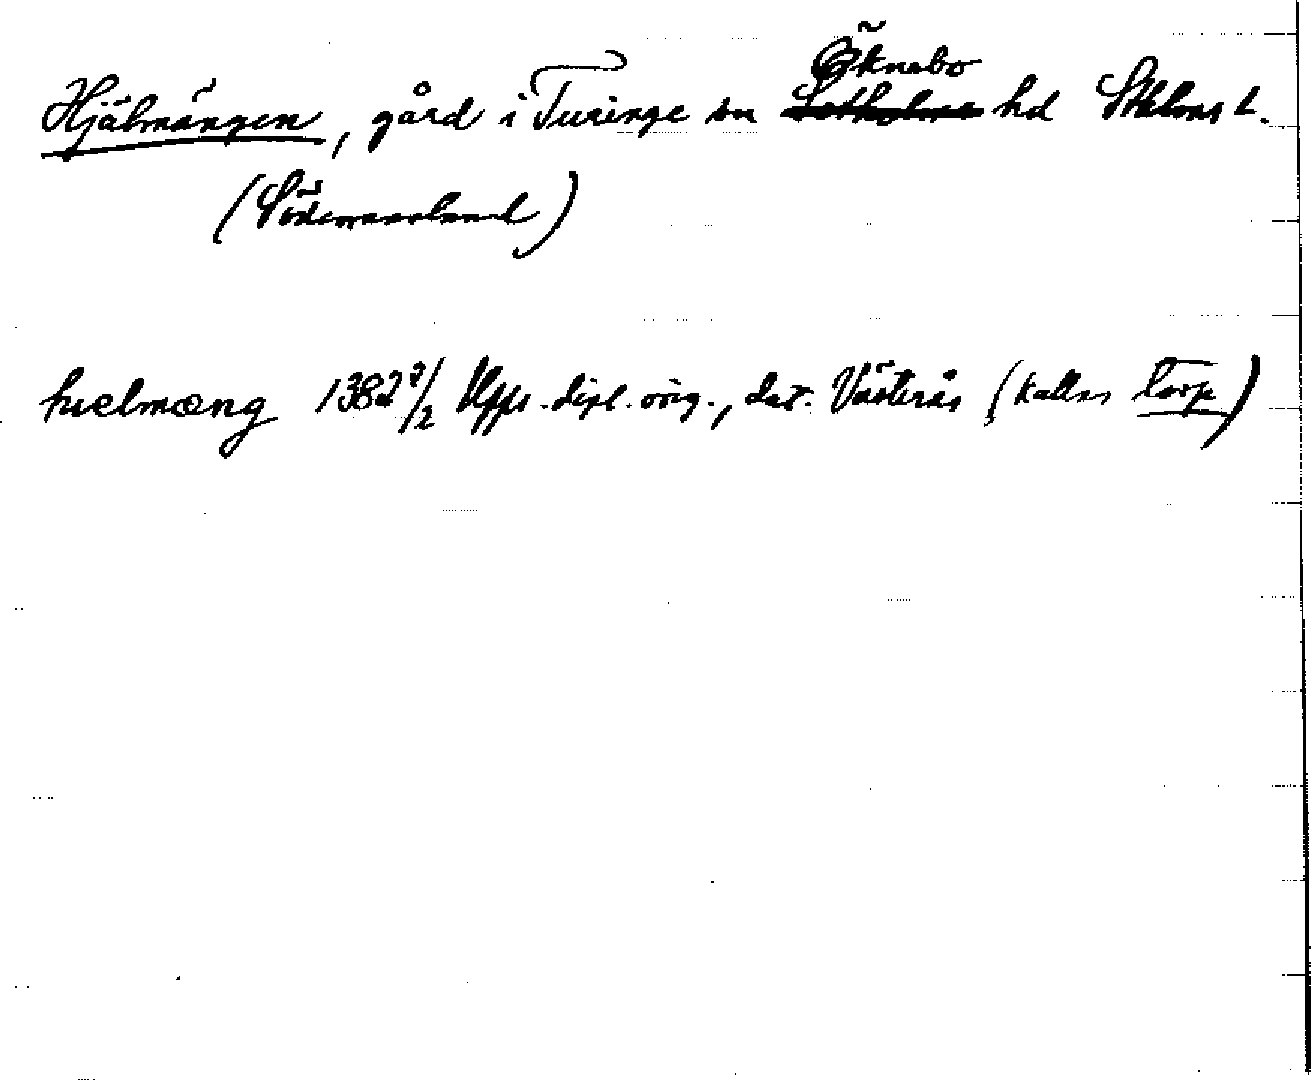 Hjälmängen, gård i Turinge sn Öknebo hd Sthlms l.
(Södermanland)
hielmæng 1382 7/2 Upps. dipl. orig., dat. Västerås (kallas torp)